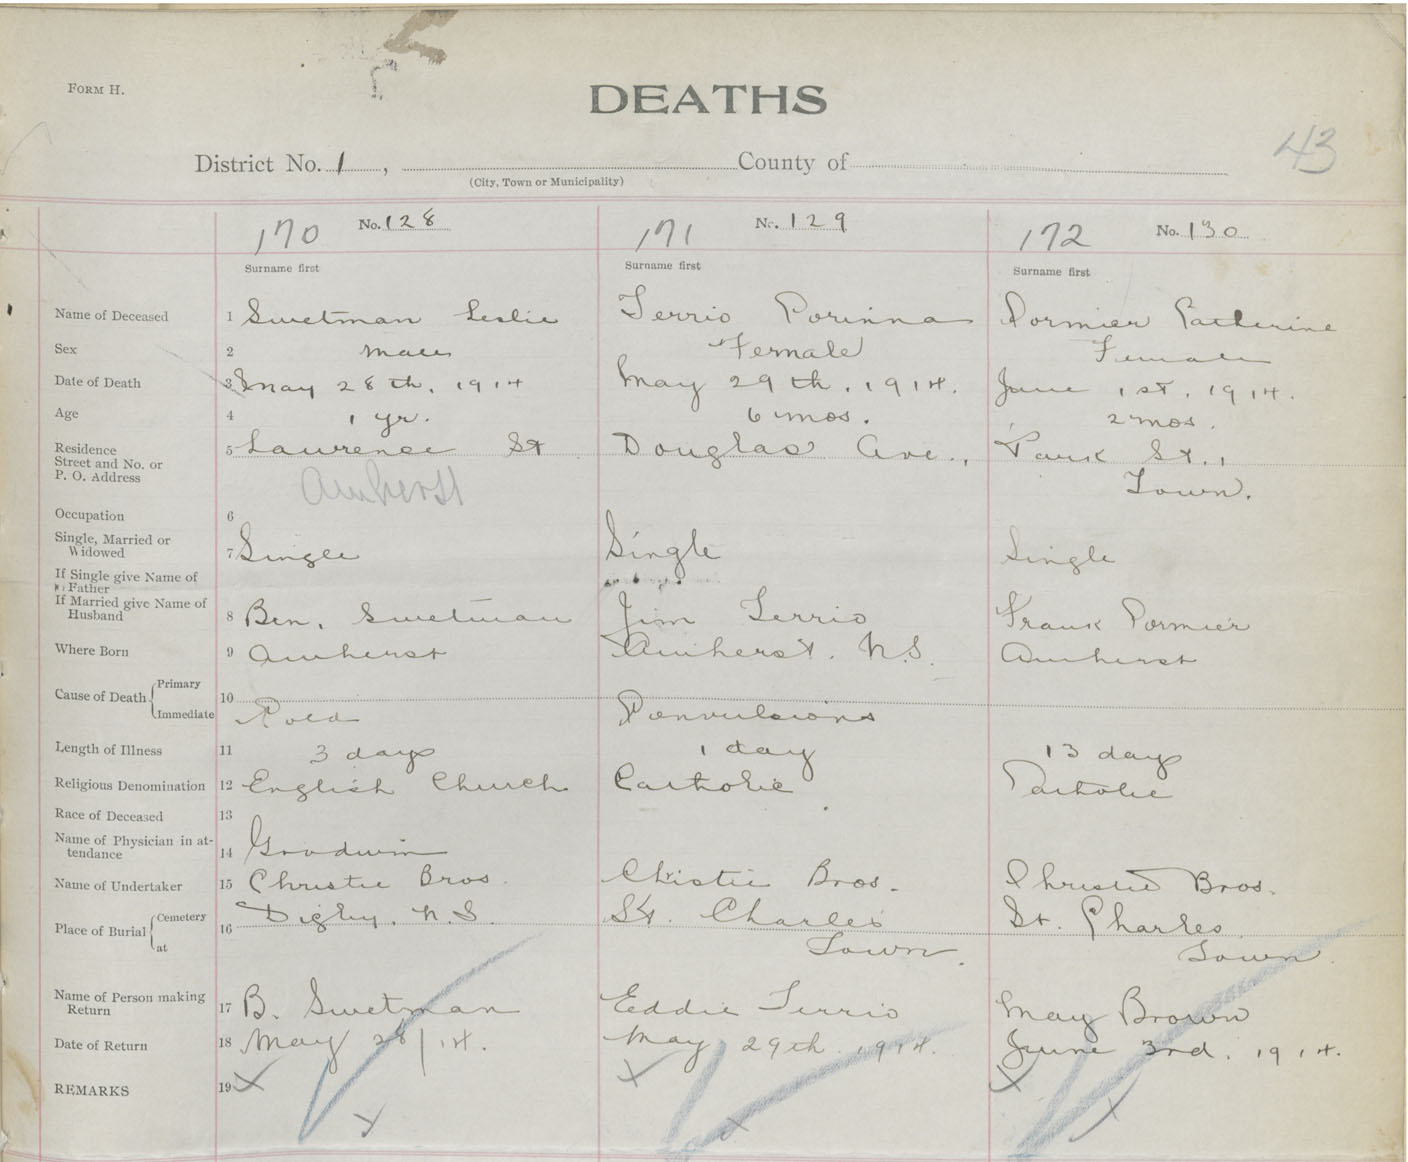 FORM H.
DEATHS
43
District No. 1, County of
(City, Town or Municipality)
170 No. 128 171 No. 129 172 No. 130
Surname first Surname first Surname first
Name of Deceased 1 Swetman Leslie Terrio Corinna Cormier Catherine
Sex 2 Male Female Female
Date of Death 3 May 28th, 1914 May 29th, 1914. June 1st, 1914.
Age 4 1 yr. 6 mos. 2 mos.
Residence 5 Lawrence St Douglas Ave., Park St.,
Street and No. or
P. O. Address Amherst Town.
Occupation 6
Single, Married or
Widowed 7 Single Single Single
If Single give Name of
Father
If Married give Name of
Husband 8 Ben. Swetman Jim Terrio Frank Cormier
Where Born 9 Amherst Amherst. N.S. Amherst
Cause of Death Primary 10
Immediate Cold Convulsions
Length of Illness 11 3 days 1 day 13 days
Religious Denomination 12 English Church Catholic Catholic
Race of Deceased 13
Name of Physician in at-
tendance 14 Goodwin
Name of Undertaker 15 Christie Bros. Chistie Bros. Christie Bros.
Place of Burial Cemetery 16 Digby, N.S. St. Charles St. Charles
at Town. Town.
Name of Person making
Return 17 B. Swetman Eddie Terrio May Brown
Date of Return 18 May 28/14. May 29th 1914. June 3rd, 1914.
REMARKS 19 x x x
x x x